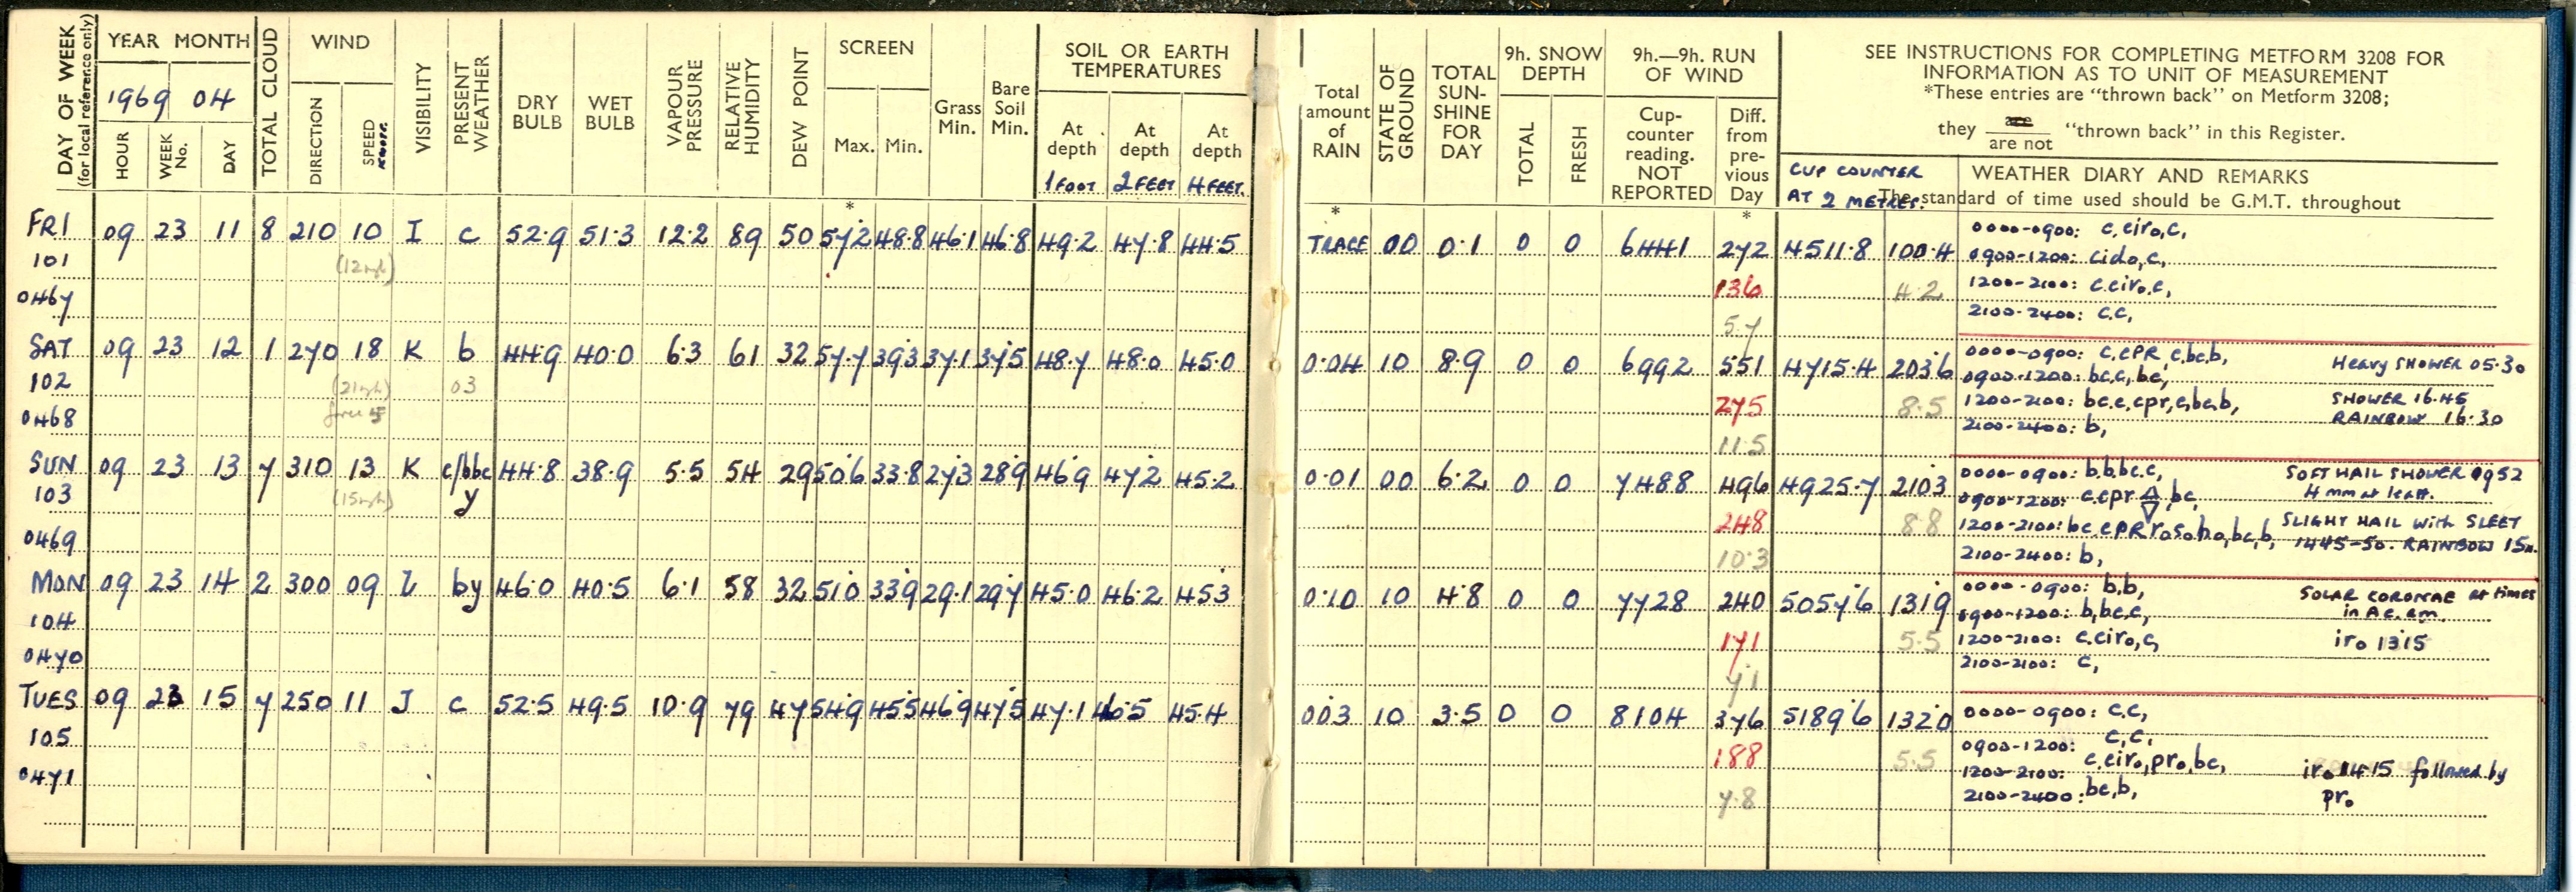 DAY OF WEEK
(for local reference only)
YEAR MONTH
1969 04
HOUR
WEEK No.
DAY
TOTAL CLOUD
WIND
DIRECTION
SPEED KNOTS.
VISIBILITY
PRESENT WEATHER
DRY BULB
WET BULB
VAPOUR PRESSURE
RELATIVE HUMIDITY
DEW POINT
SCREEN
Max. Min.
*
Grass Min.
Bare Soil Min.
SOIL OR EARTH
TEMPERATURES
At depth At depth At depth
1 FOOT 2 FEET 4 FEET.
Total amount of RAIN
*
STATE OF GROUND
TOTAL SUN-SHINE FOR DAY
9h. SNOW DEPTH
TOTAL FRESH
9h.—9h. RUN OF WIND
Cup-counter reading. NOT REPORTED
Diff. from pre-vious Day
*
SEE INSTRUCTIONS FOR COMPLETING METFORM 3208 FOR
INFORMATION AS TO UNIT OF MEASUREMENT
*These entries are "thrown back" on Metform 3208;
they are / are not "thrown back" in this Register.
CUP COUNTER
AT 2 METRES.
WEATHER DIARY AND REMARKS
The standard of time used should be G.M.T. throughout
FRI 09 23 11 8 210 10 I c 52.9 51.3 12.2 89 50 57.2 48.8 46.1 46.8 49.2 47.8 44.5 TRACE 00 0.1 0 0 6441 272 4511.8 100.4
101 (12mph)
0467
136 4.2
5.7
0000-0900: c,ciro,c,
0900-1200: cido,c,
1200-2100: c,ciro,c,
2100-2400: c,c,
SAT 09 23 12 1 270 18 K b 44.9 40.0 6.3 61 32 57.7 39.3 37.1 37.5 48.7 48.0 45.0 0.04 10 8.9 0 0 6992 551 4715.4 203.6
102 (21mph) 03
0468 force 5
275 8.5
11.5
0000-0900: c,cPR,c,bc,b, Heavy SHOWER 05.30
0900-1200: bc,c,bc,
1200-2100: bc,c,cpr,c,bc,b, SHOWER 16.45
RAINBOW 16.30
2100-2400: b,
SUN 09 23 13 7 310 13 K c/bbc y 44.8 38.9 5.5 54 29 50.6 33.8 27.3 28.9 46.9 47.2 45.2 0.01 00 6.2 0 0 7488 496 4925.7 210.3
103 (15mph)
0469
248 8.8
10.3
0000-0900: b,b,bc,c, SOFT HAIL SHOWER 0952
4 mm at least.
0900-1200: c,cpr, bc,
1200-2100: bc,cPRrososhobc,b, SLIGHT HAIL with SLEET
1445-50. RAINBOW
2100-2400: b,
MON 09 23 14 2 300 09 L by 46.0 40.5 6.1 58 32 51.0 33.9 29.1 29.7 45.0 46.2 45.3 0.10 10 4.8 0 0 7728 240 5057.6 131.9
104
0470
171 5.5
7.1
0000-0900: b,b, SOLAR CORONAE at times
in Ac. am.
0900-1200: b,bc,c,
1200-2100: c,ciro,c, iro 13.15
2100-2100: c,
TUES 09 23 15 7 250 11 J c 52.5 49.5 10.9 79 47 54.9 45.5 46.9 47.5 47.1 46.5 45.4 0.03 10 3.5 0 0 8104 376 5189.6 132.0
105
0471
188 5.5
7.8
0000-0900: c,c,
0900-1200: c,c,
1200-2100: c,ciro,pro,bc, iro 14.15 followed by
pro
2100-2400: bc,b,